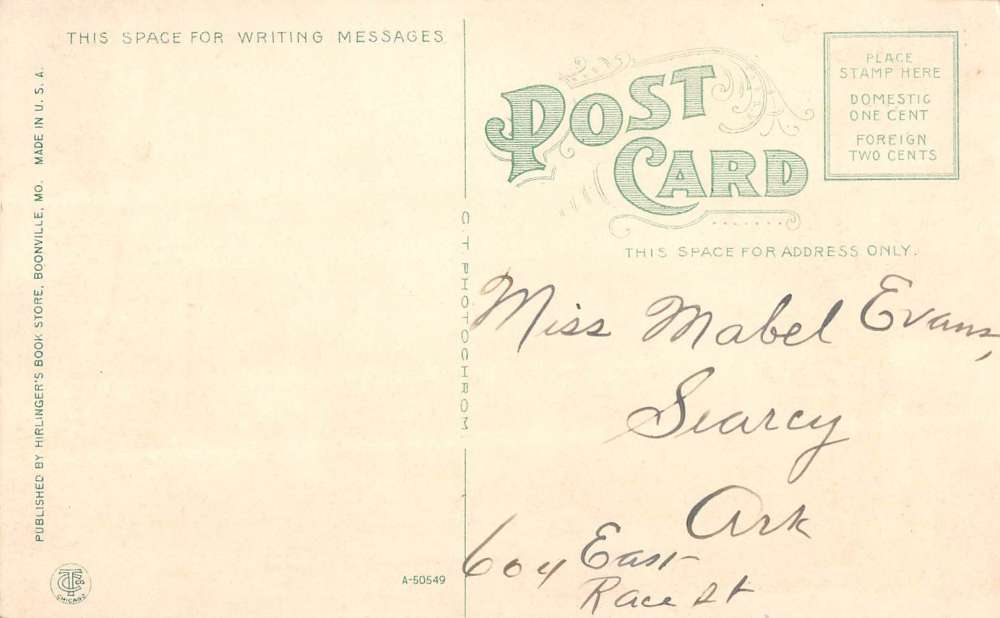 THIS SPACE FOR WRITING MESSAGES
POST
CARD
PLACE
STAMP HERE
DOMESTIC
ONE CENT
FOREIGN
TWO CENTS
THIS SPACE FOR ADDRESS ONLY.
PUBLISHED BY HIRLINGER'S BOOK STORE, BOONVILLE, MO. MADE IN U. S. A.
C. T. PHOTOCHROM
Miss Mabel Evans,
Searcy
Ark
604 East
Race St
A-50549
CHICAGO